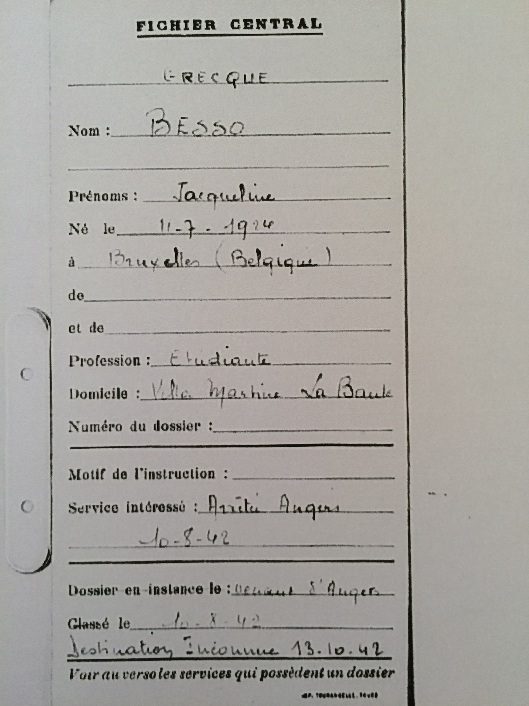 FICHIER CENTRAL
GRECQUE
Nom : BESSO
Prénoms : Jacqueline
Né le 11-7-1924
à Bruxelles (Belgique)
de
et de
Profession : Etudiante
Domicile : Villa Martine La Baule
Numéro du dossier :
Motif de l'instruction :
Service intéressé : Angers
10-8-42
Dossier en instance le : venant d'Angers
Classé le 10-8-42
Destination Inconnue 13.10.42
Voir au verso les services qui possèdent un dossier